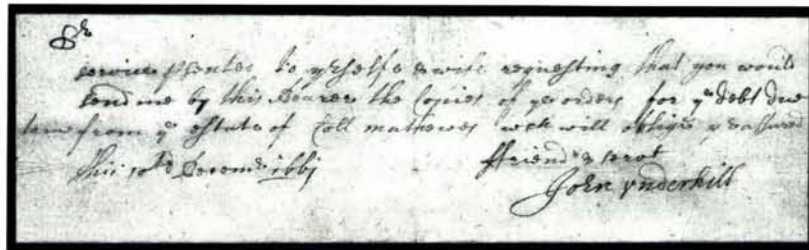 Sr
service psented to yrselfe & wife requesting that you would
send me by this Bearer the Copies of ye orders for ye debt due
from ye estate of Coll mathewes wch will oblige yr assured
this 10th Decem: 1661 ffriend & servt
John ynderhill